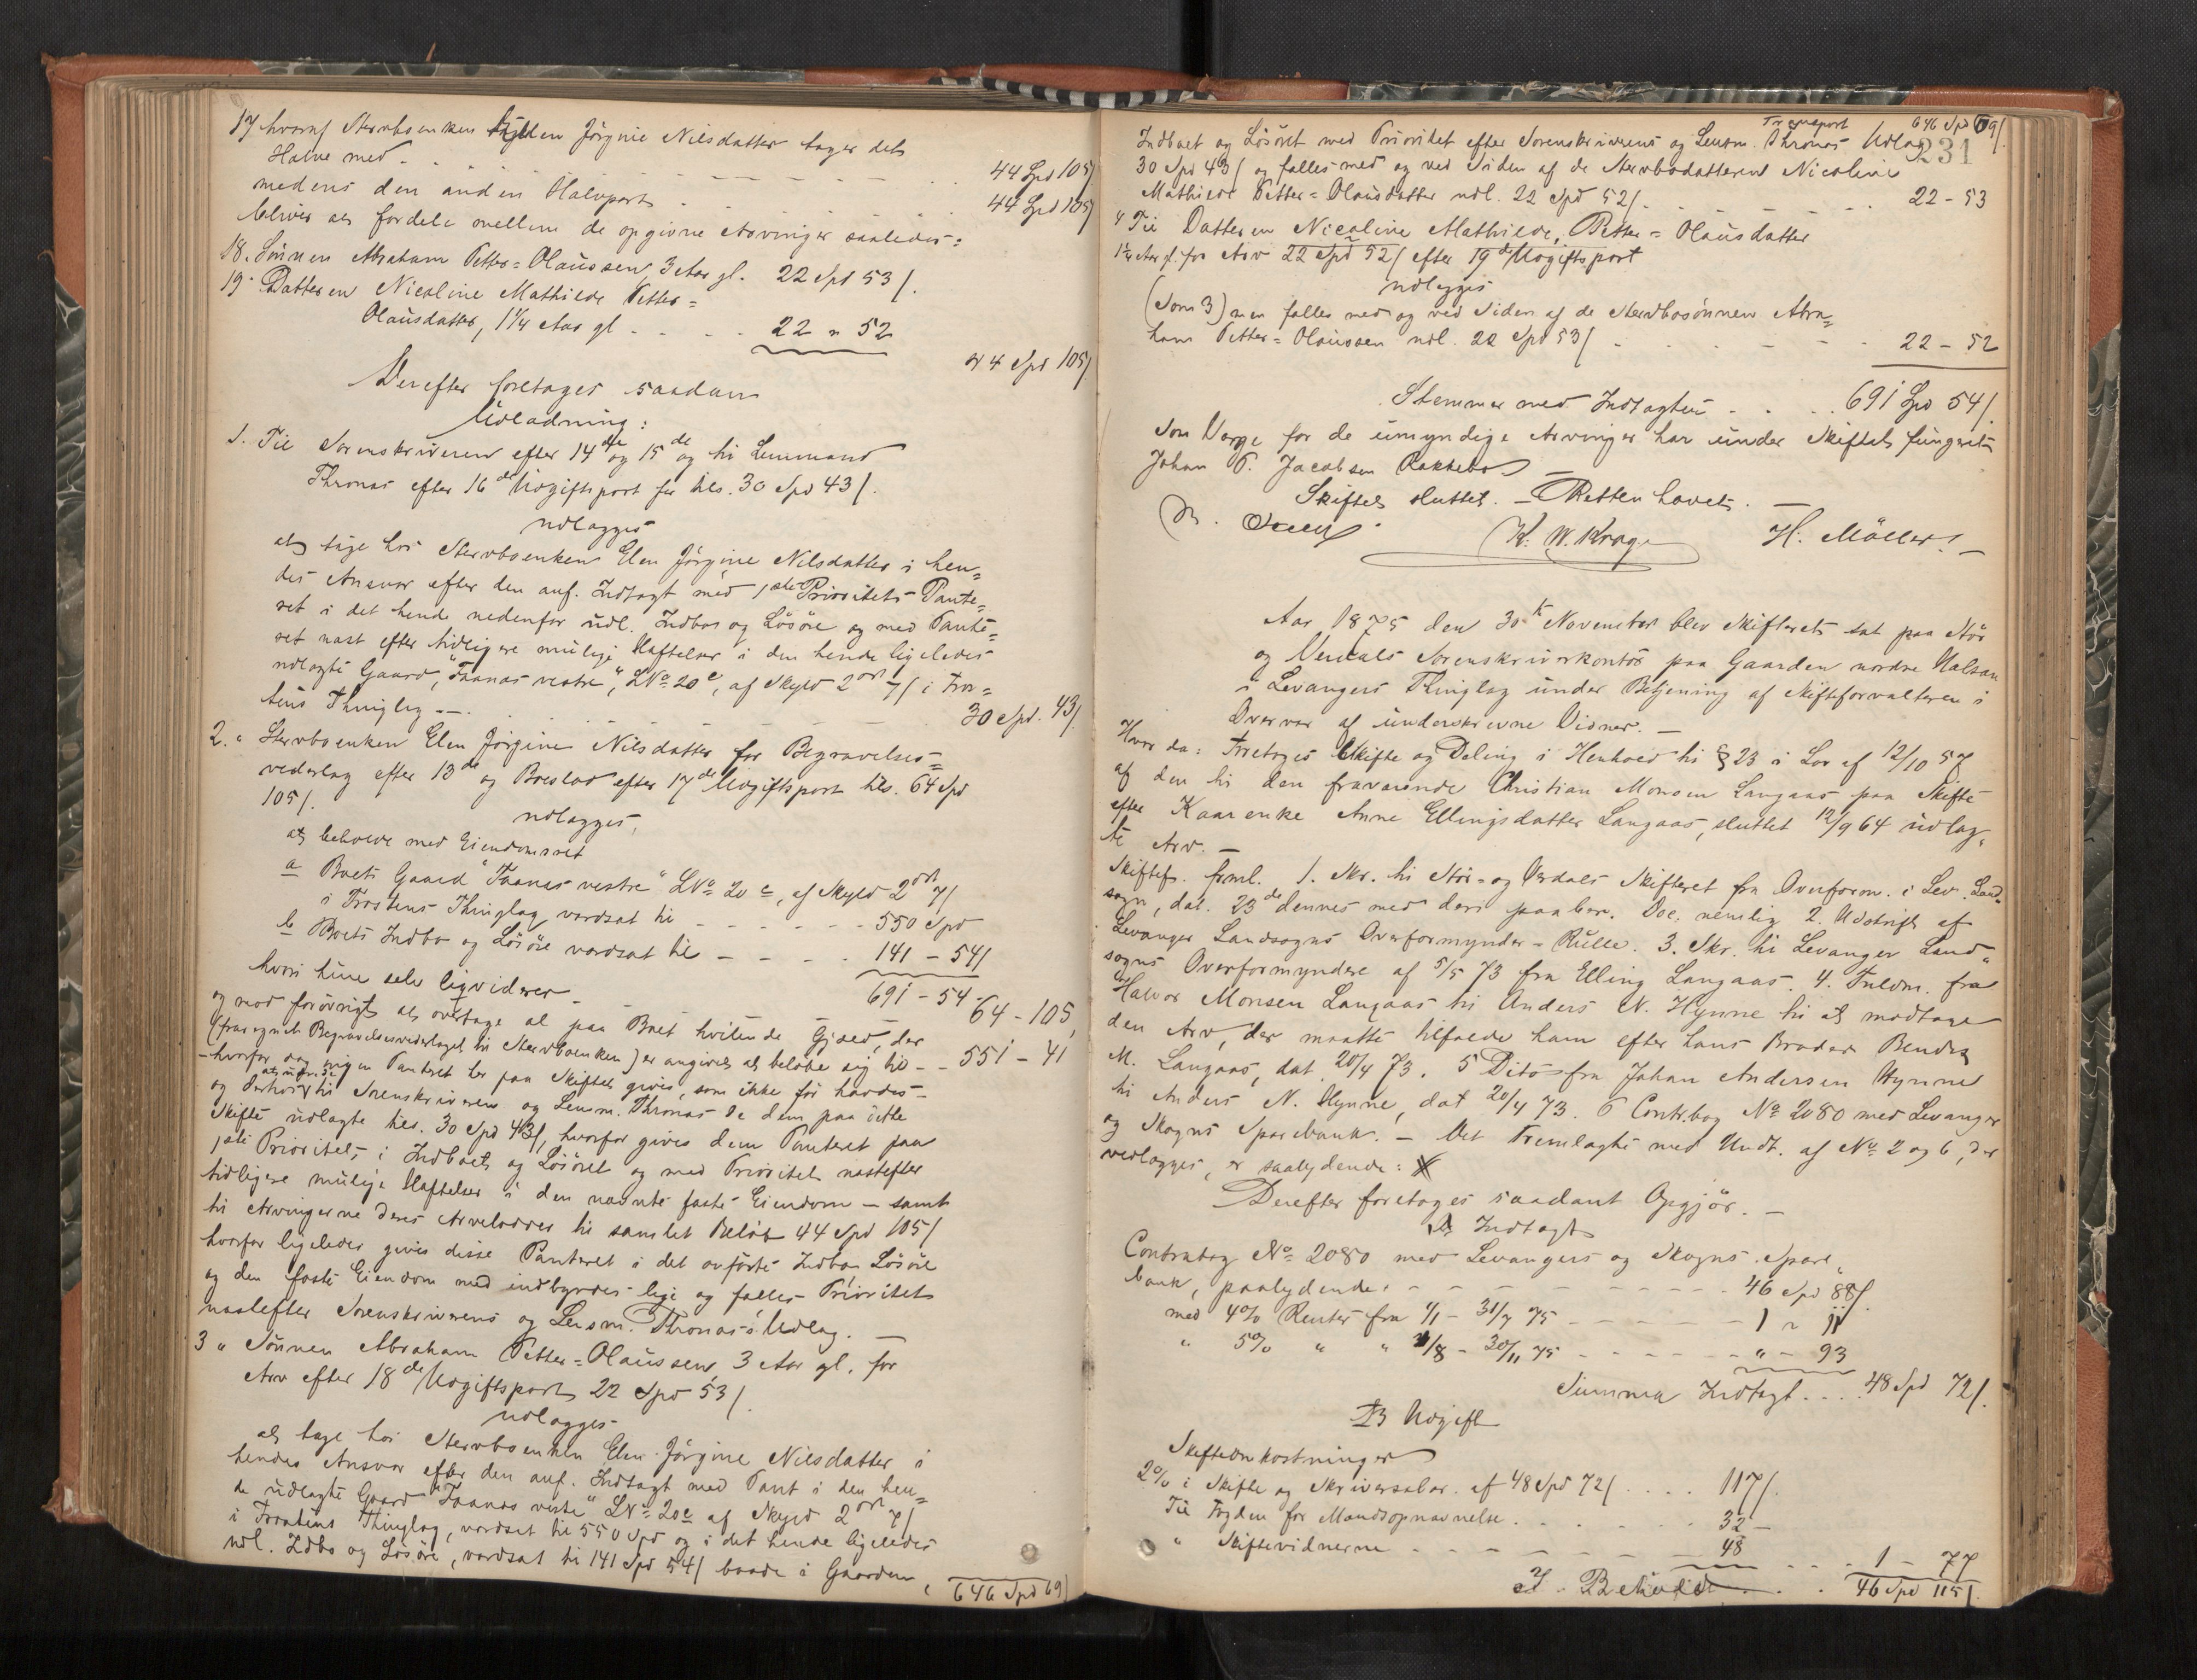 17 hvoraf Stervboenken Elen Jörgine Nilsdatter tager det
Halve med - - - 44 Spd 105/.
medens den anden Halvpart - - - 44 Spd 105/
bliver at fordele mellem de opgivne Arvinger saaledes:
18. Sönnen Abraham Petter=Olaussen, 3 Aar gl. 22 Spd 53/.
19. Datteren Nicoline Mathilde Petter=
Olausdatter, 1 1/4 Aar gl - - - 22 " 52
44 Spd 105/.
Derefter foretages saadan
Udlodning:
1. Til Sorenskriveren efter 14de og 15de og til Lensmand
Thronæs efter 16de Udgiftspost for tils. 30 Spd 43/.
udlægges
at tage hos Stervboenken Elen Jörgine Nilsdatter i hen=
des Ansvar efter den anf. Indtægt med 1ste Prioritets-Pante=
ret i det hende nedenfor udl. Indbo og Lösöre og med Pante=
ret næst efter tidligere mulige Heftelser i den hende ligeledes
udlagte Gaard, "Faanæs vestre", LNo 20c, af Skyld 2 ort 7/ i Fro=
stens Thinglag - - - 30 Spd. 43/.
2. " Stervboenken Elen Jörgine Nilsdatter for Begravelses=
vederlag efter 13de og Boeslod efter 17de Udgiftspost tils. 64 Spd
105/.
udlægges,
at beholde med Eiendomsret
a Boets Gaard "Faanæs vestre" LNo 20c, af Skyld 2 ort 7/
i Frostens Thinglag, værdsat til - - - 550 Spd
b Boets Indbo og Lösöre værdsat til - - - 141 - 54/
691 - 54 -
hvori hun selv liqviderer - - - 64 - 105,
og mod forövrigt at overtage al paa Boet hvilende Gjæld, der
(fraregnet Begravelsesvederlaget til Stervboenken) er angivet at beløbe sig til - - 551 - 41
- hvorfor dog ingen Panteret her paa Skiftet gives, som ikke för havdes -
og at udrede til Sorenskriveren og Lensm. Thronæs de dem paa dette
Skifte udlagte tils. 30 Spd 43/, hvorfor gives dem Panteret paa
1ste Prioritet, i Indboet og Lösöret og med Prioritet næstefter
tidligere mulige Heftelser i den nævnte faste Eiendom - samt
til Arvingerne deres Arvelodder til samlet Belöb 44 Spd 105/
hvorfor ligeledes gives disse Panteret i det anförte Indbo, Lösöre
og den faste Eiendom med indbyrdes lige og fælles Prioritet
næstefter Sorenskriverens og Lensm. Thronæs's Udlæg. -
3 " Sönnen Abraham Petter=Olaussen, 3 Aar gl. for
Arv efter 18de Udgiftspost 22 Spd 53/.
udlægges
at tage hos Stervboenken Elen Jörgine Nilsdatter i
hendes Ansvar efter den anf. Indtægt med Pant i den hen=
de udlagte Gaard "Faanæs vestre" LNo 20c af Skyld 2 ort 7/
i Frostens Thinglag, værdsat til 550 Spd og i det hende ligeledes
udl. Idbo og Lösöre, værdsat til 141 Spd 54/ baade i Gaarden,
646 Spd 69/
Transport 646 Spd 69/.
231
Indboet og Lösöret med Prioritet efter Sorenskriverens og Lensm. Thronæs Udlæg
30 Spd 43/ og fælles med og ved Siden af de Stervbodatteren Nicoline
Mathilde Petter=Olausdatter udl. 22 Spd 52/. - - - 22 - 53
4 Til Datteren Nicoline Mathilde, Petter=Olausdatter
1 1/4 Aar gl. for Arv 22 Spd 52/ efter 19de Udgiftspost
udlægges
(Som 3) men fælles med og ved Siden af de Stervbosönnen Abra=
ham Petter=Olaussen udl. 22 Spd 53/ - - - 22 - 52
Stemmer med Indtægten - - - 691 Spd 54/.
Som Værge for de umyndige Arvinger har under Skiftet fungeret
Johan P. Jacobsen -
Skiftet sluttet. - Retten hævet. -
K. W. Krog. H. Möller. -
Aar 1875 den 30te November blev Skifteret sat paa Stör
og Verdals Sorenskriverkontor paa Gaarden nordre Halsan
i Levangers Thinglag under Betjening af Skifteforvalteren i
Overvær af underskrevne Vidner. -
Hvor da: Foretoges Skifte og Deling i Henhold til § 23 i Lov af 12/10 57
af den til den fraværende Christian Monsen Langaas paa Skifte
efter Kaarenke Anne Ellingsdatter Langaas, sluttet 12/9 64 udlag=
te Arv. -
Skiftef. freml. 1. Skr. til Stör- og Værdals Skifteret fra Overform. i Lev. Land=
sogn, dat. 23de dennes med deri paaber. Doc. nemlig 2. Udskrift af
Levanger Landsogns Overformynder-Rulle. 3. Skr. til Levanger Land=
sogns Overformyndere af 5/5 73 fra Elling Langaas. 4. Fuldm. fra
Halvor Monsen Langaas til Anders N. Hynne til at modtage
den Arv, der maatte tilfalde ham efter hans Broder Bendix
M. Langaas, dat. 20/4 73. 5 Dito fra Johan Andersen Hynne
til Anders N. Hynne, dat 20/4 73. 6 Contrabog No 2080 med Levanger
og Skogns Sparebank. - Det Fremlagte med Undt. af No 2 og 6, der
vedlægges, er saalydende:
Derefter foretages saadant Opgjör. -
A Indtægt
Contrabog No 2080 med Levangers og Skogns Spare=
bank, paalydende - - - 46 Spd 88/.
med 4% Renter fra 1/1 - 31/7 75 - - - 1 " 11
" 5% " " 1/8 - 30/11 75 - - - " - 93
Summa Indtægt - - - 48 Spd 72/.
B Udgift
Skifteomkostninger
2% i Skifte og Skriversalar. af 48 Spd 72/ . . . . 117/.
Til Fogden for Mandsopnævnelse - - - 32 -
" Skiftevidnerne - - - 48 - - - 1 - 77
I Behold - - - 46 Spd 115/.